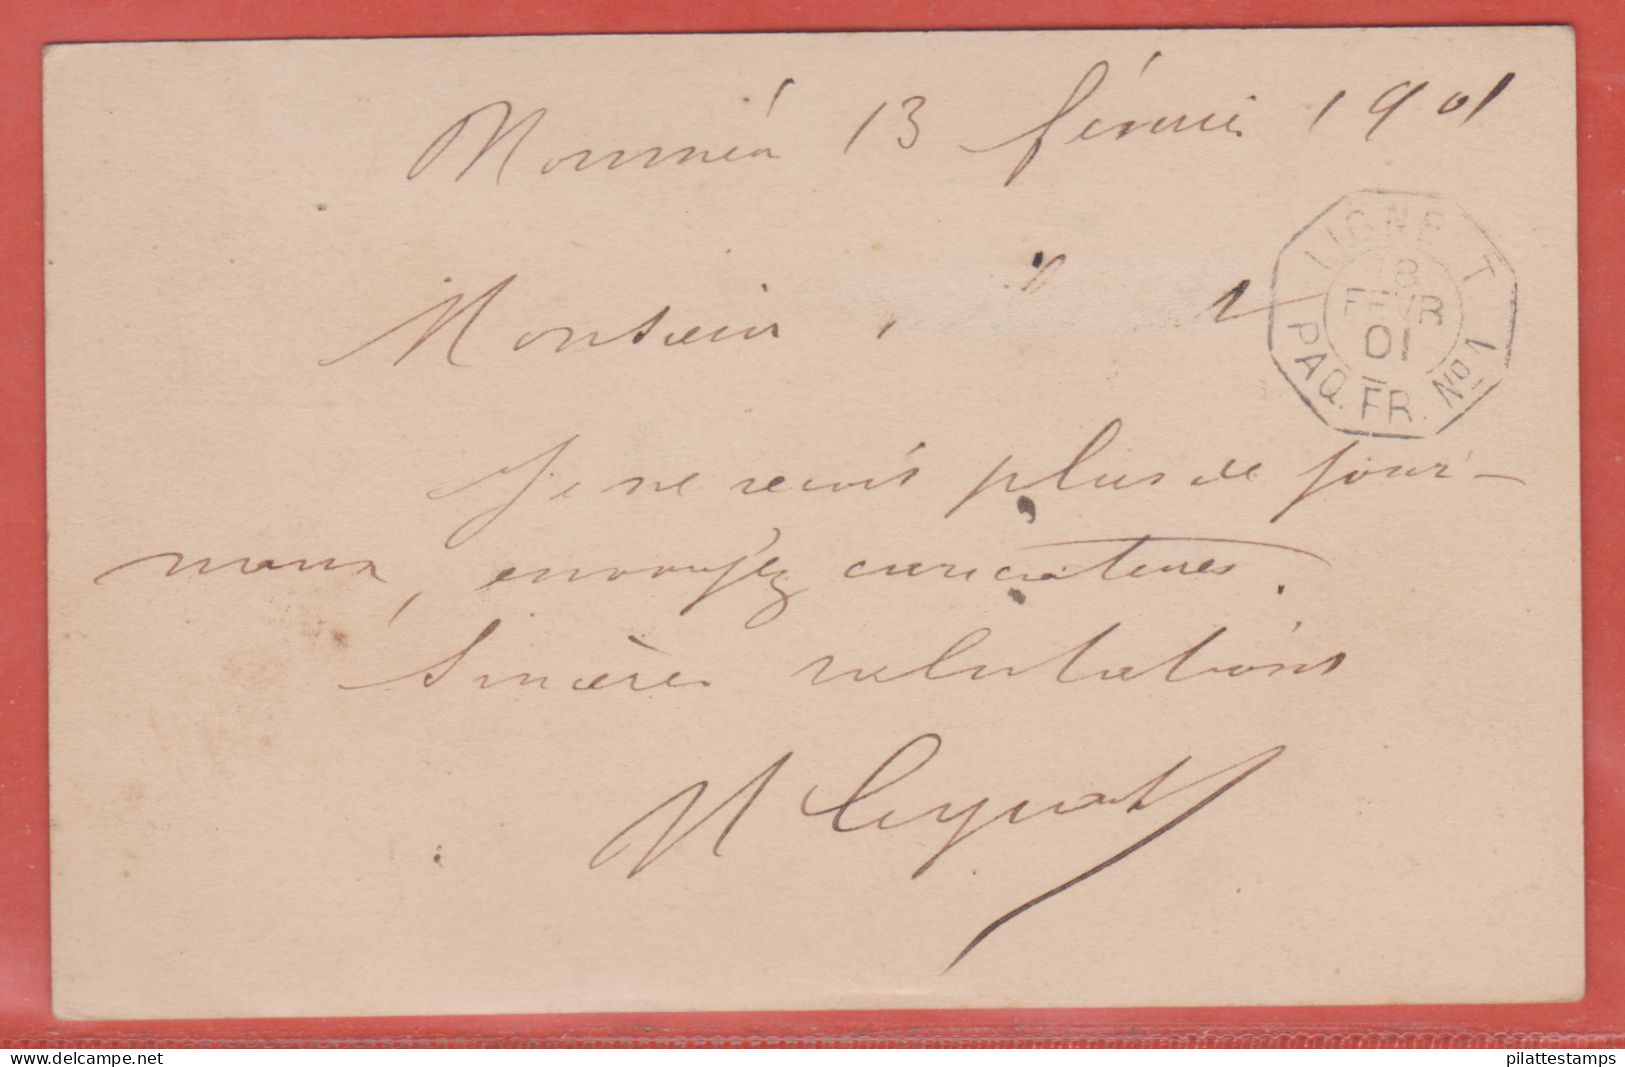 Nouméa 13 février 1901
Monsieur,
LIGNE T.
18
FEVR
01
PAQ. FR. No 1
Je ne reçois plus de jour-
naux, envoyez caricatures.
Sincères salutations
delcampe.net
pilattestamps